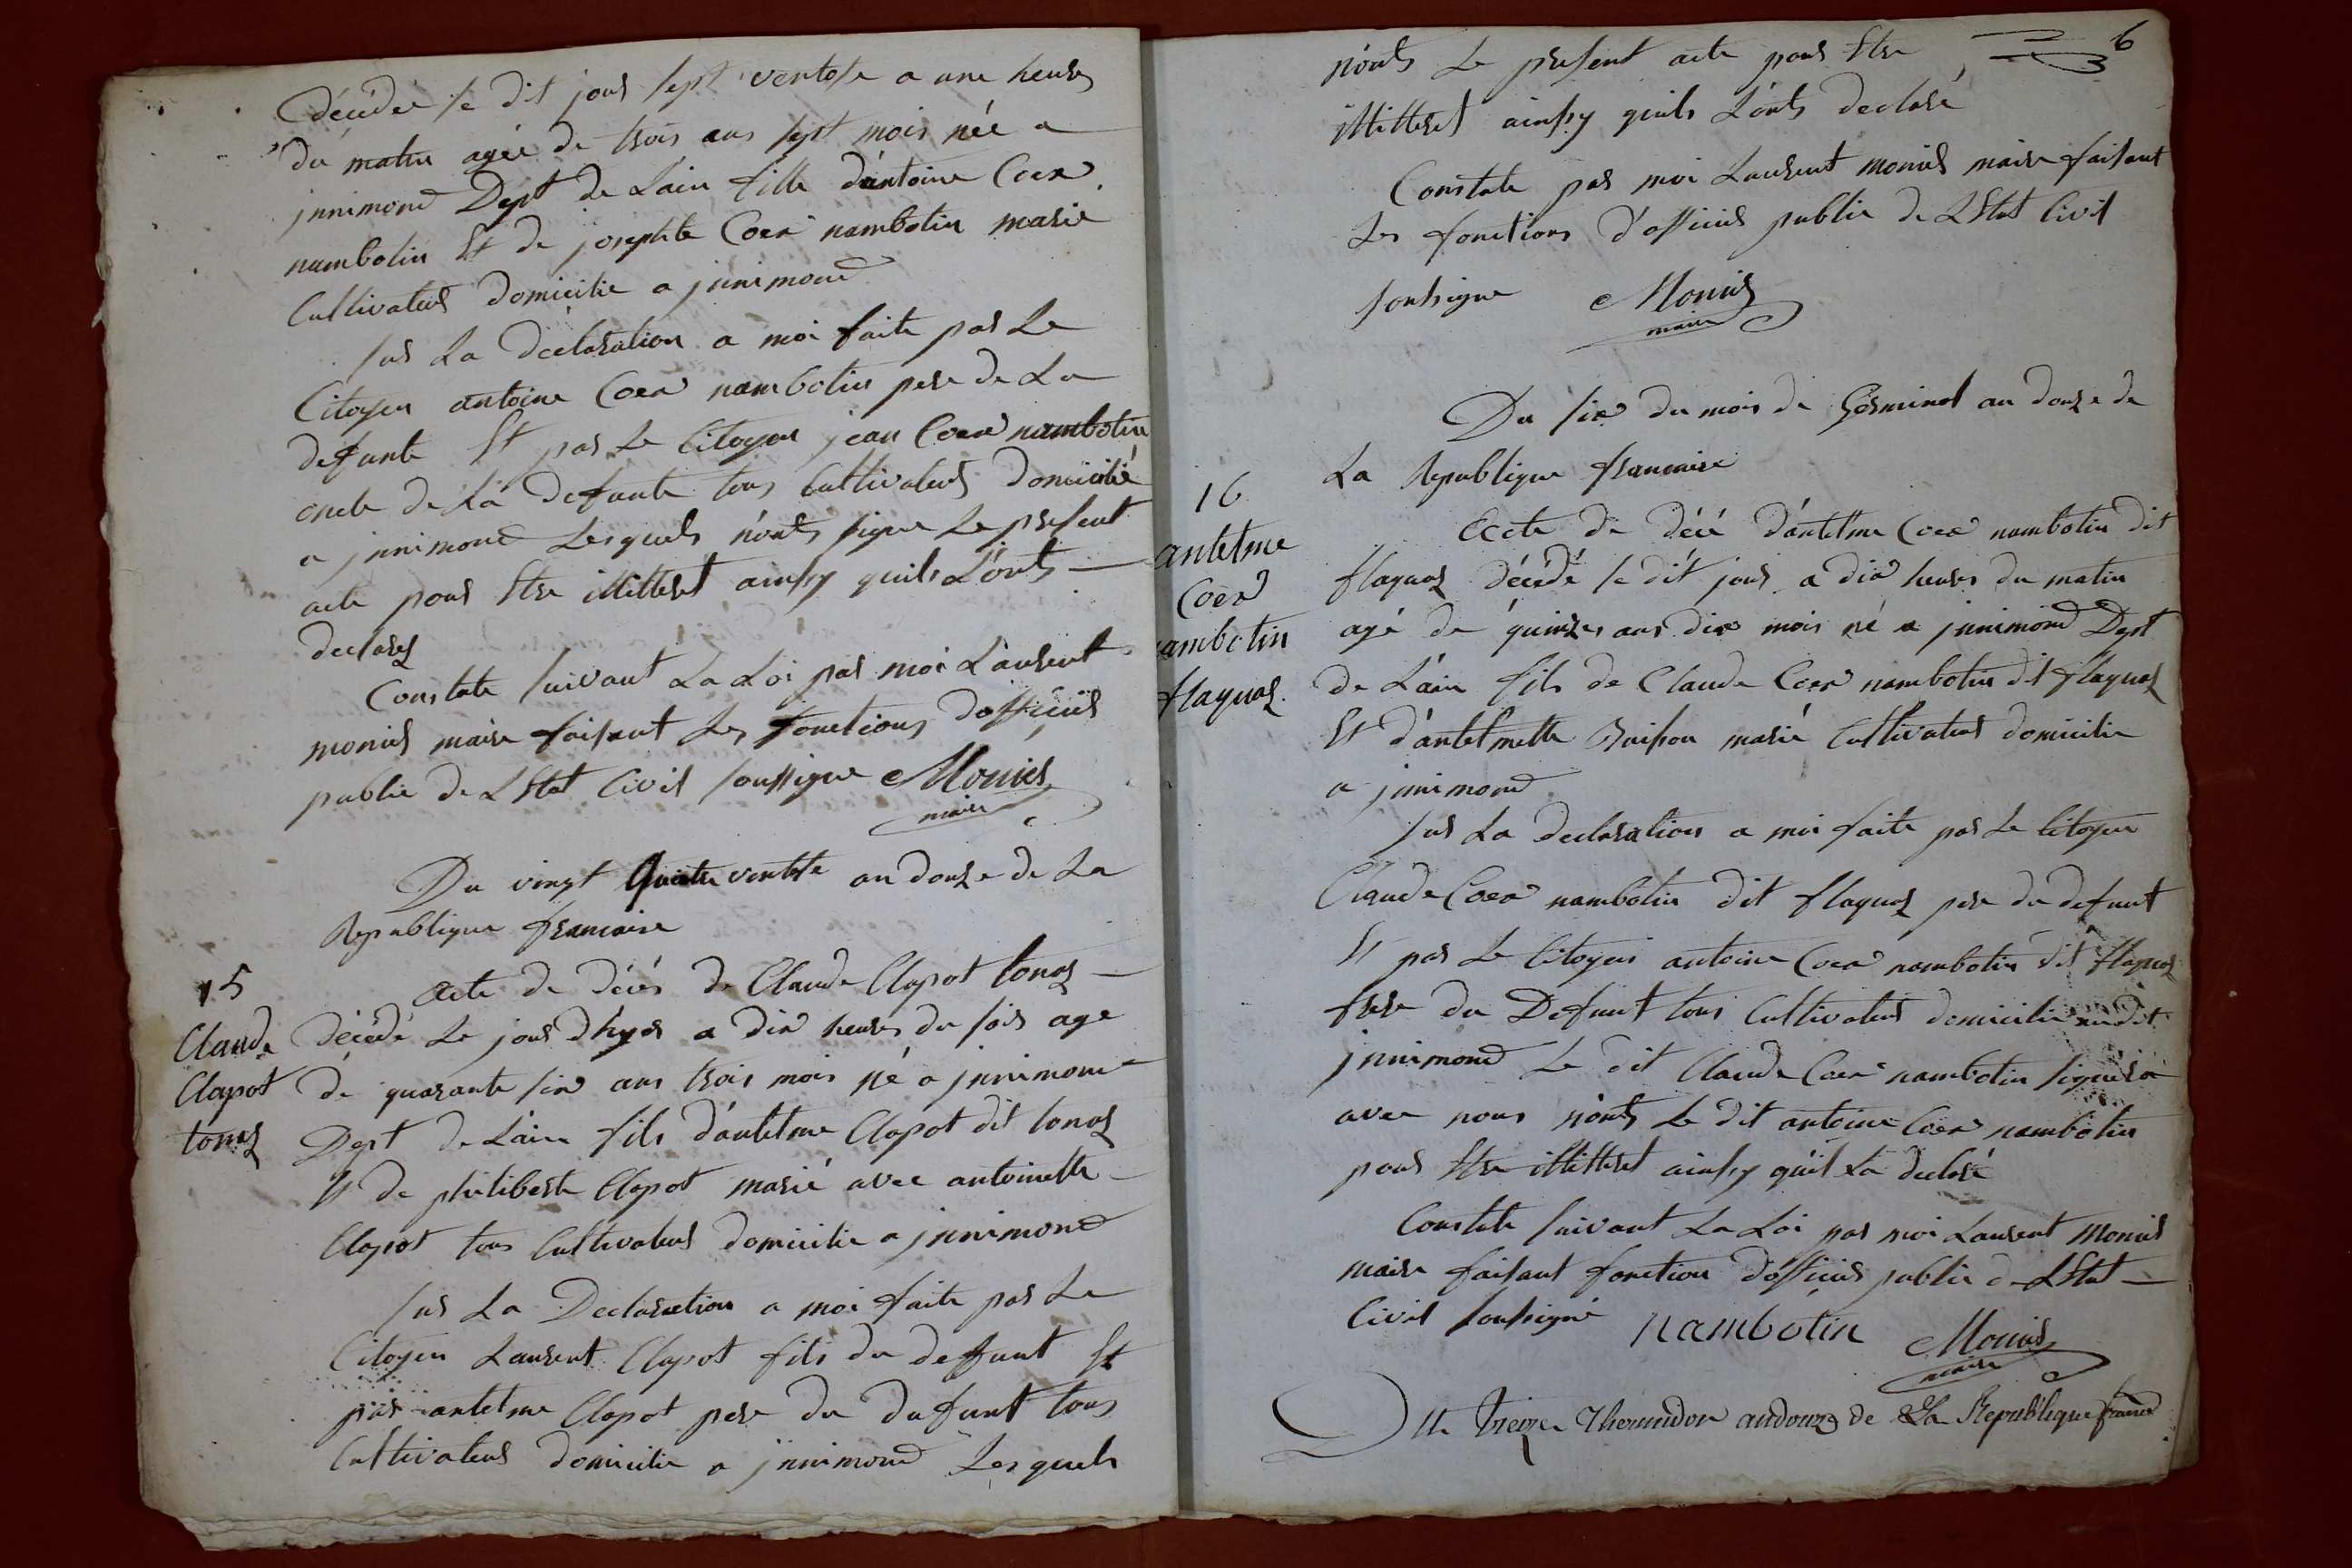 décédée le dit jour sept ventose a une heure
du matin agée de trois ans sept mois née a
jnnimond Dept de Lain fille d'antoine Coex
nambotin Et de josephte Coex nambotin marie
Cultivateur domicilie a jnnimond
sur La declaration a moi faite par Le
Citoyen antoine Coex nambotin pere de La
defunte Et par Le Citoyen jean Coex nambotin
oncle de La defunte tous Cultivateur domicilié
a jnnimond Lesquels n'onts signe Le present
acte pour Etre illitteret ainsy quils L'onts
declarez
Constate suivant La Loi par moi Laurent
monier maire faisant Les fonctions dofficier
public de LEtat Civil soussigne Monier
maire
Du vingt Quatre ventose an douze de La
Republique francaise
15
Claude
Clapot
tonaz
Acte de décés de Claude Clapot tonaz
décédé Le jour d'hyer a dix heures du soir age
de quarante six ans trois mois né a jnnimond
Dept de Lain fils d'antelme Clapot dit tonaz
Et de philiberte Clapot marié avec antoinette
Clapot tous Cultivateur domicilie a jnnimond
sur La Declaration a moi faite par Le
Citoyen Laurent Clapot fils du deffunt Et
par antelme Clapot pere du defunt tous
Cultivateur domicilie a jnnimond Lesquels
6
n'onts Le present acte pour Etre
illitteret ainsy quils L'onts declaré
Constate par moi Laurent monier maire faisant
Les fonctions d'officier public de LEtat Civil
soussigne Monier
maire
Du six du mois de Germinal an douze de
La Republique francaise
16
antelme
Coex
nambotin
flaquaz
Acte de décé d'antelme Coex nambotin dit
flaquaz décédé le dit jour a dix heures du matin
agé de quinze ans dix mois né a jnnimond Dept
de Lain fils de Claude Coex nambotin dit flaquaz
Et d'antelmette Buisson marié Cultivateur domicilie
a jnnimond
sur La declaration a moi faite par Le Citoyen
Claude Coex nambotin dit flaquaz pere du defunt
Et par Le Citoyen antoine Coex nambotin dit flaquaz
frere du Defunt tous Cultivateur domicilie audit
jnnimond Le dit Claude Coex nambotin signera
avec nous n'onts Le dit antoine Coex nambotin
pour Etre illitteret ainsy qu'il La declaré
Constate suivant La Loi par moi Laurent Monier
maire faisant fonction d'officier public de LEtat
Civil soussigné nambotin Monier
maire
Du treize Thermidor an douze de La Republique franc